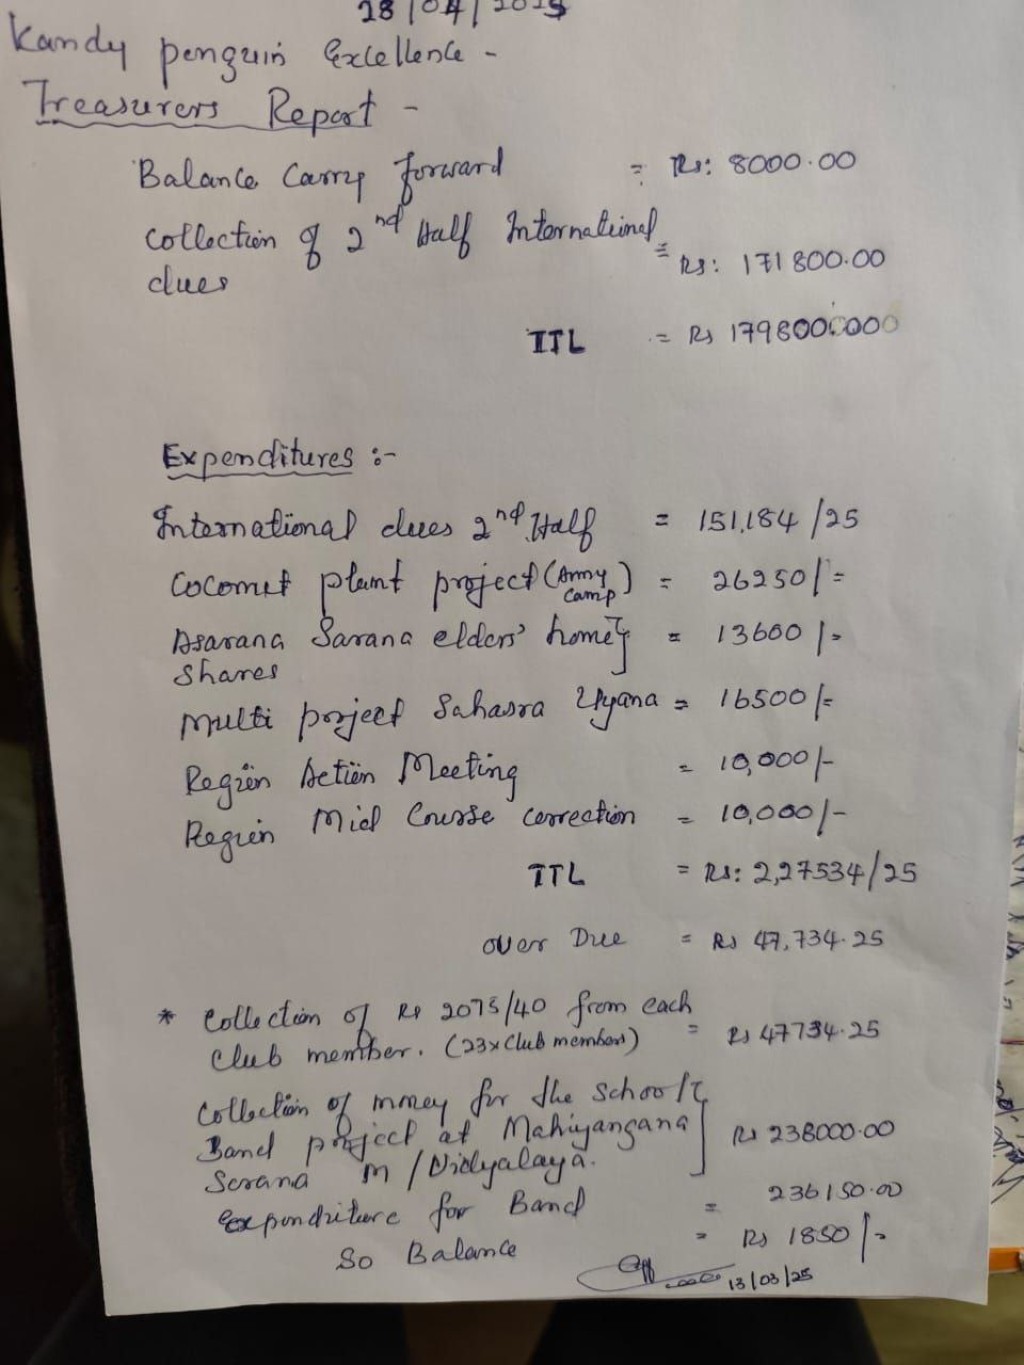 28/04/2025
Kandy penguin Excellence -
Treasurers Report -
Balance Carry forward = Rs: 8000.00
Collection of 2nd Half International = Rs: 171800.00
dues
TTL = Rs 179800.00
Expenditures :-
International dues 2nd Half = 151,184/25
Coconut plant project (Army Camp) = 26250/=
Asarana Sarana elders' home } = 13600/-
Shares
Multi project Sahasra Uyana = 16500/=
Region Action Meeting = 10,000/-
Region Mid Course correction = 10,000/-
TTL = Rs: 2,27534/25
Over Due = Rs 47,734.25
* Collection of Rs 2075/40 from each
Club member. (23xClub members) = Rs 47734.25
Collection of money for the School
Band project at Mahiyangana ] Rs 238000.00
Sorana M/Vidyalaya.
Expenditure for Band = 236150.00
So Balance = Rs 1850/-
13/03/25